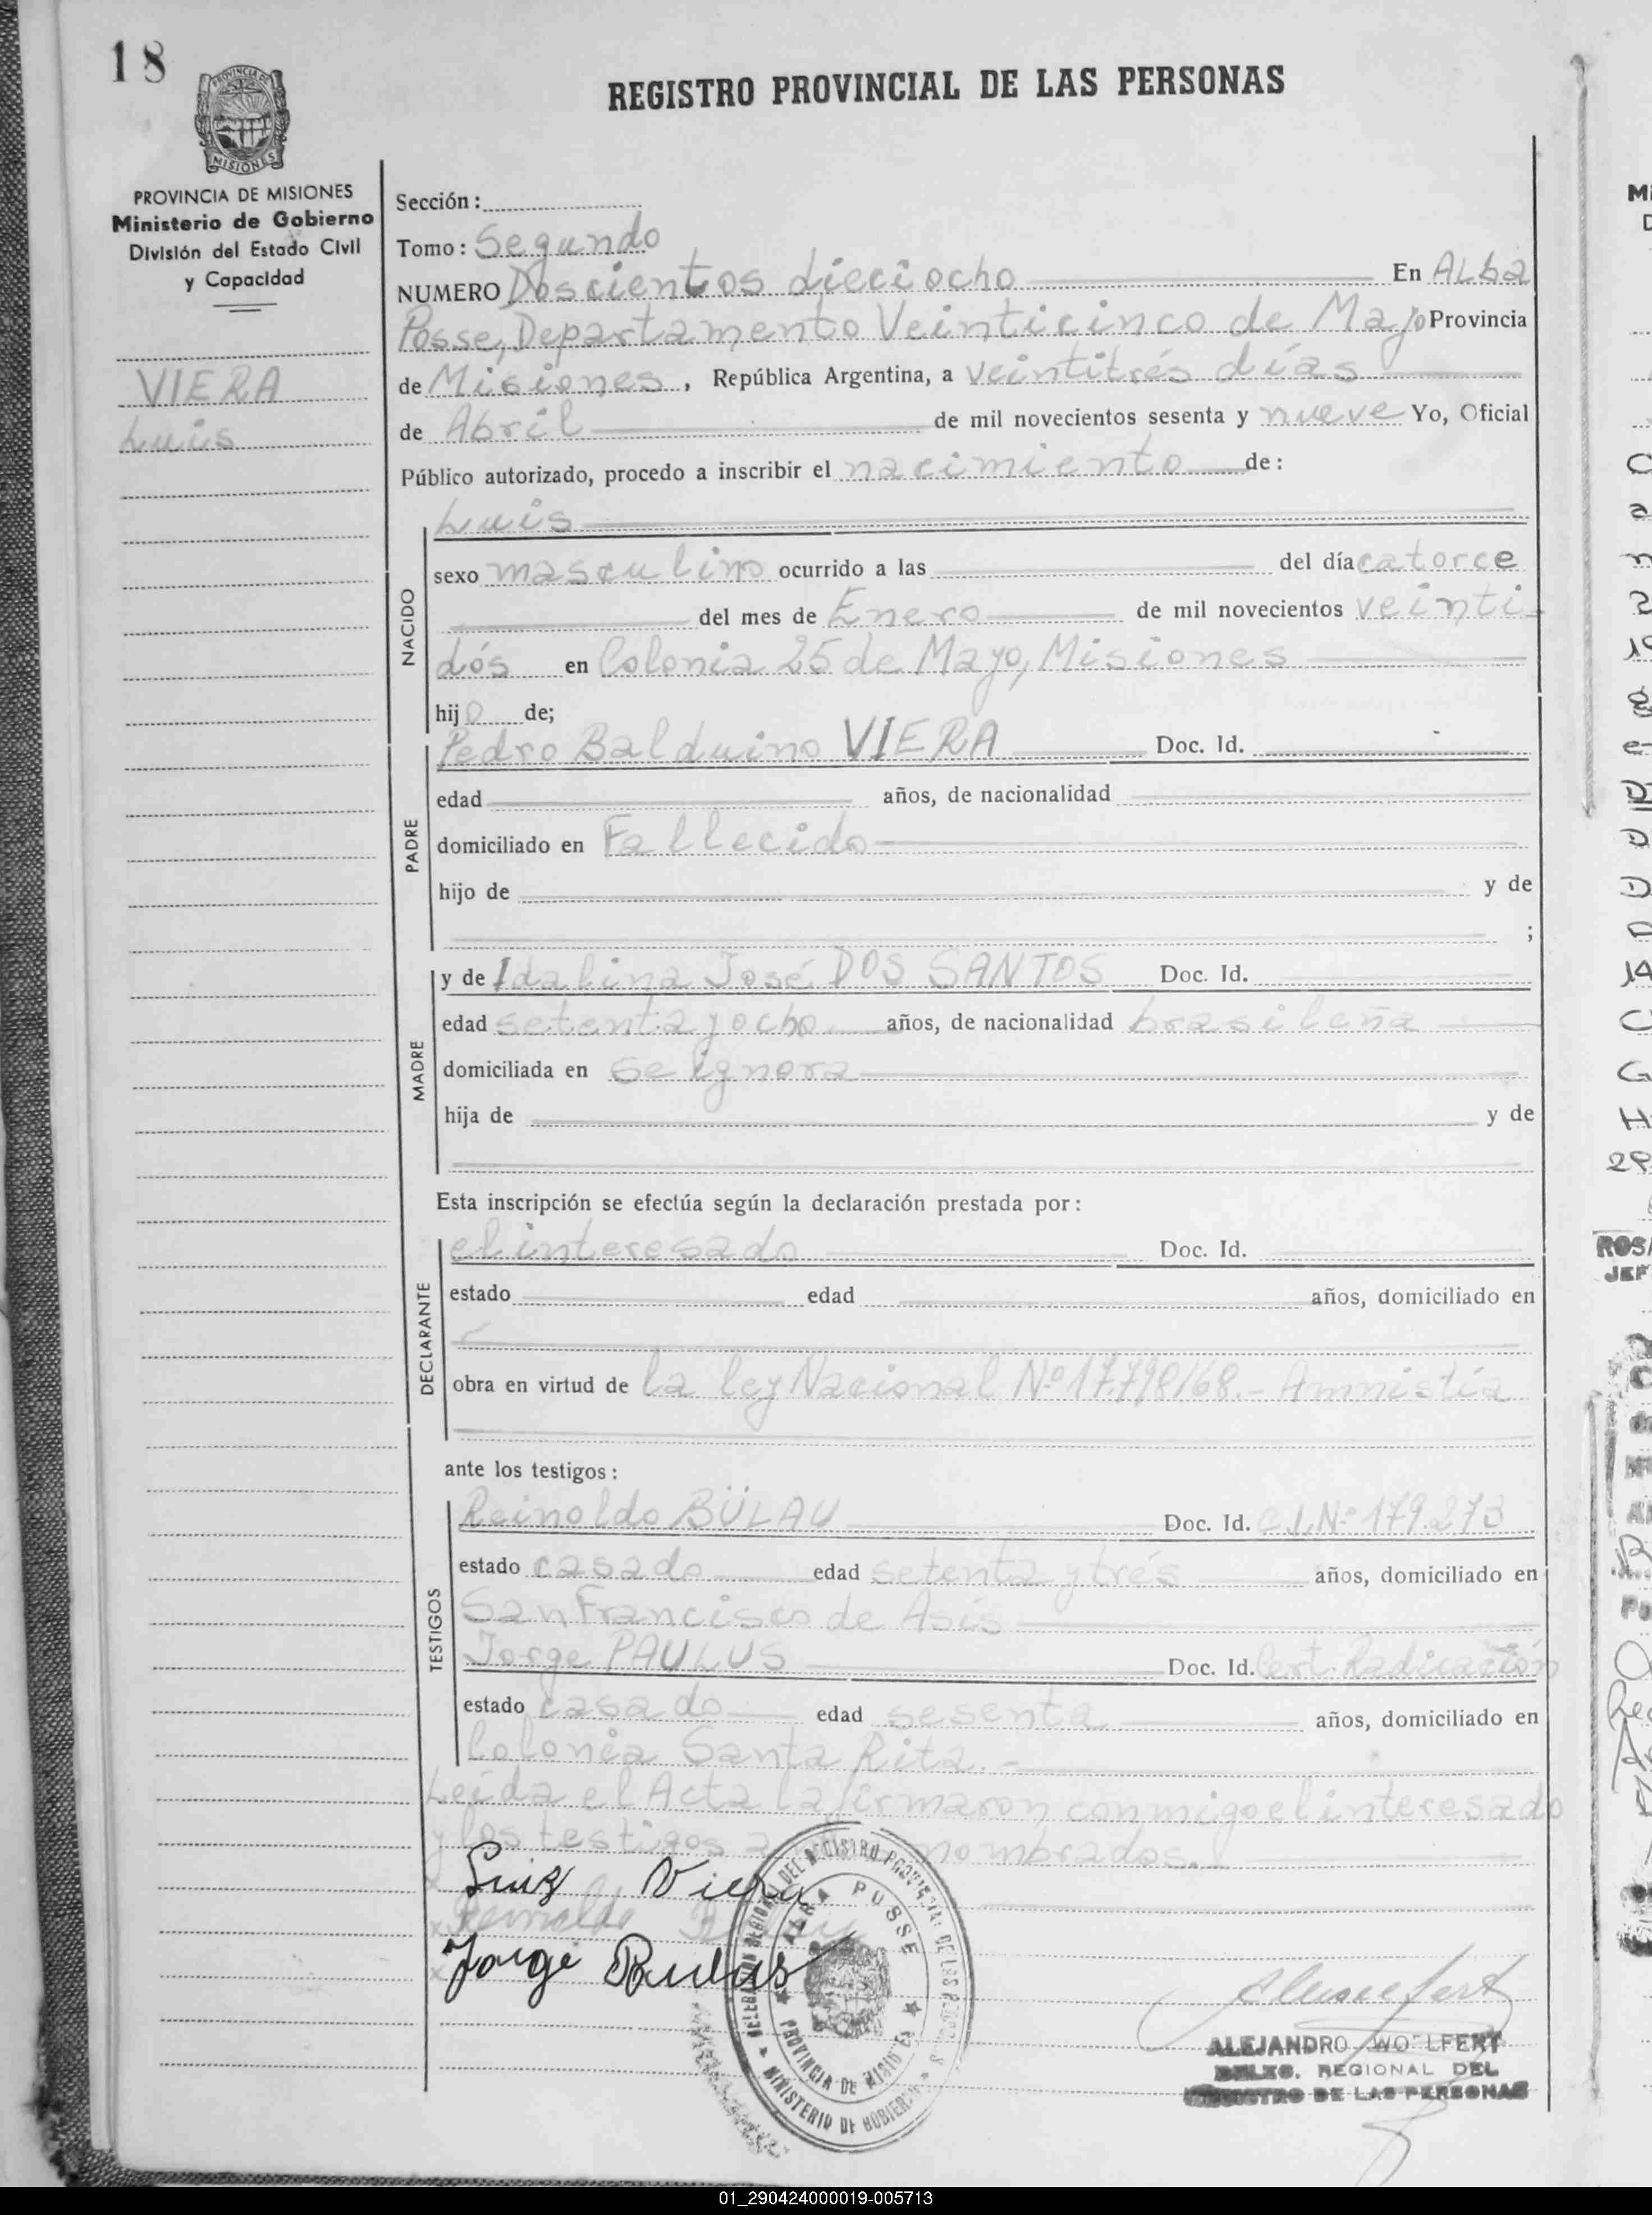 18
REGISTRO PROVINCIAL DE LAS PERSONAS
PROVINCIA DE
MISIONES
PROVINCIA DE MISIONES
Ministerio de Gobierno
División del Estado Civil
y Capacidad
VIERA
Luis
Sección:
Tomo: Segundo
NUMERO Doscientos dieciocho En ALba
Posse, Departamento Veinticinco de Mayo Provincia
de Misiones, República Argentina, a veintitrés días
de Abril de mil novecientos sesenta y nueve Yo, Oficial
Público autorizado, procedo a inscribir el nacimiento de:
NACIDO
Luis
sexo masculino ocurrido a las del día catorce
del mes de Enero de mil novecientos veinti-
dós en Colonia 25 de Mayo, Misiones
hijo de;
PADRE
Pedro Balduino VIERA Doc. Id.
edad años, de nacionalidad
domiciliado en Fallecido
hijo de y de
;
MADRE
y de Idalina José DOS SANTOS Doc. Id.
edad setenta y ocho años, de nacionalidad brasileña
domiciliada en se ignora
hija de y de
Esta inscripción se efectúa según la declaración prestada por:
DECLARANTE
el interesado Doc. Id.
estado edad años, domiciliado en
obra en virtud de la ley Nacional Nº 17.798/68.- Amnistía
ante los testigos:
TESTIGOS
Reinoldo BÜLAU Doc. Id. C.I.Nº 179.273
estado casado edad setenta y trés años, domiciliado en
San Francisco de Asis
Jorge PAULUS Doc. Id. Cert. Radicación
estado casado edad sesenta años, domiciliado en
Colonia Santa Rita.-
Leída el Acta la firmaron conmigo el interesado
y los testigos nombrados.
Luiz Viera
Reinoldo
Jorge Paulus
DELEGACION REGIONAL DEL REGISTRO PROVINCIAL DE LAS PERSONAS
ALBA POSSE
PROVINCIA DE MISIONES
MINISTERIO DE GOBIERNO
ALEJANDRO WOELFERT
DELEG. REGIONAL DEL
REGISTRO DE LAS PERSONAS
01_290424000019-005713